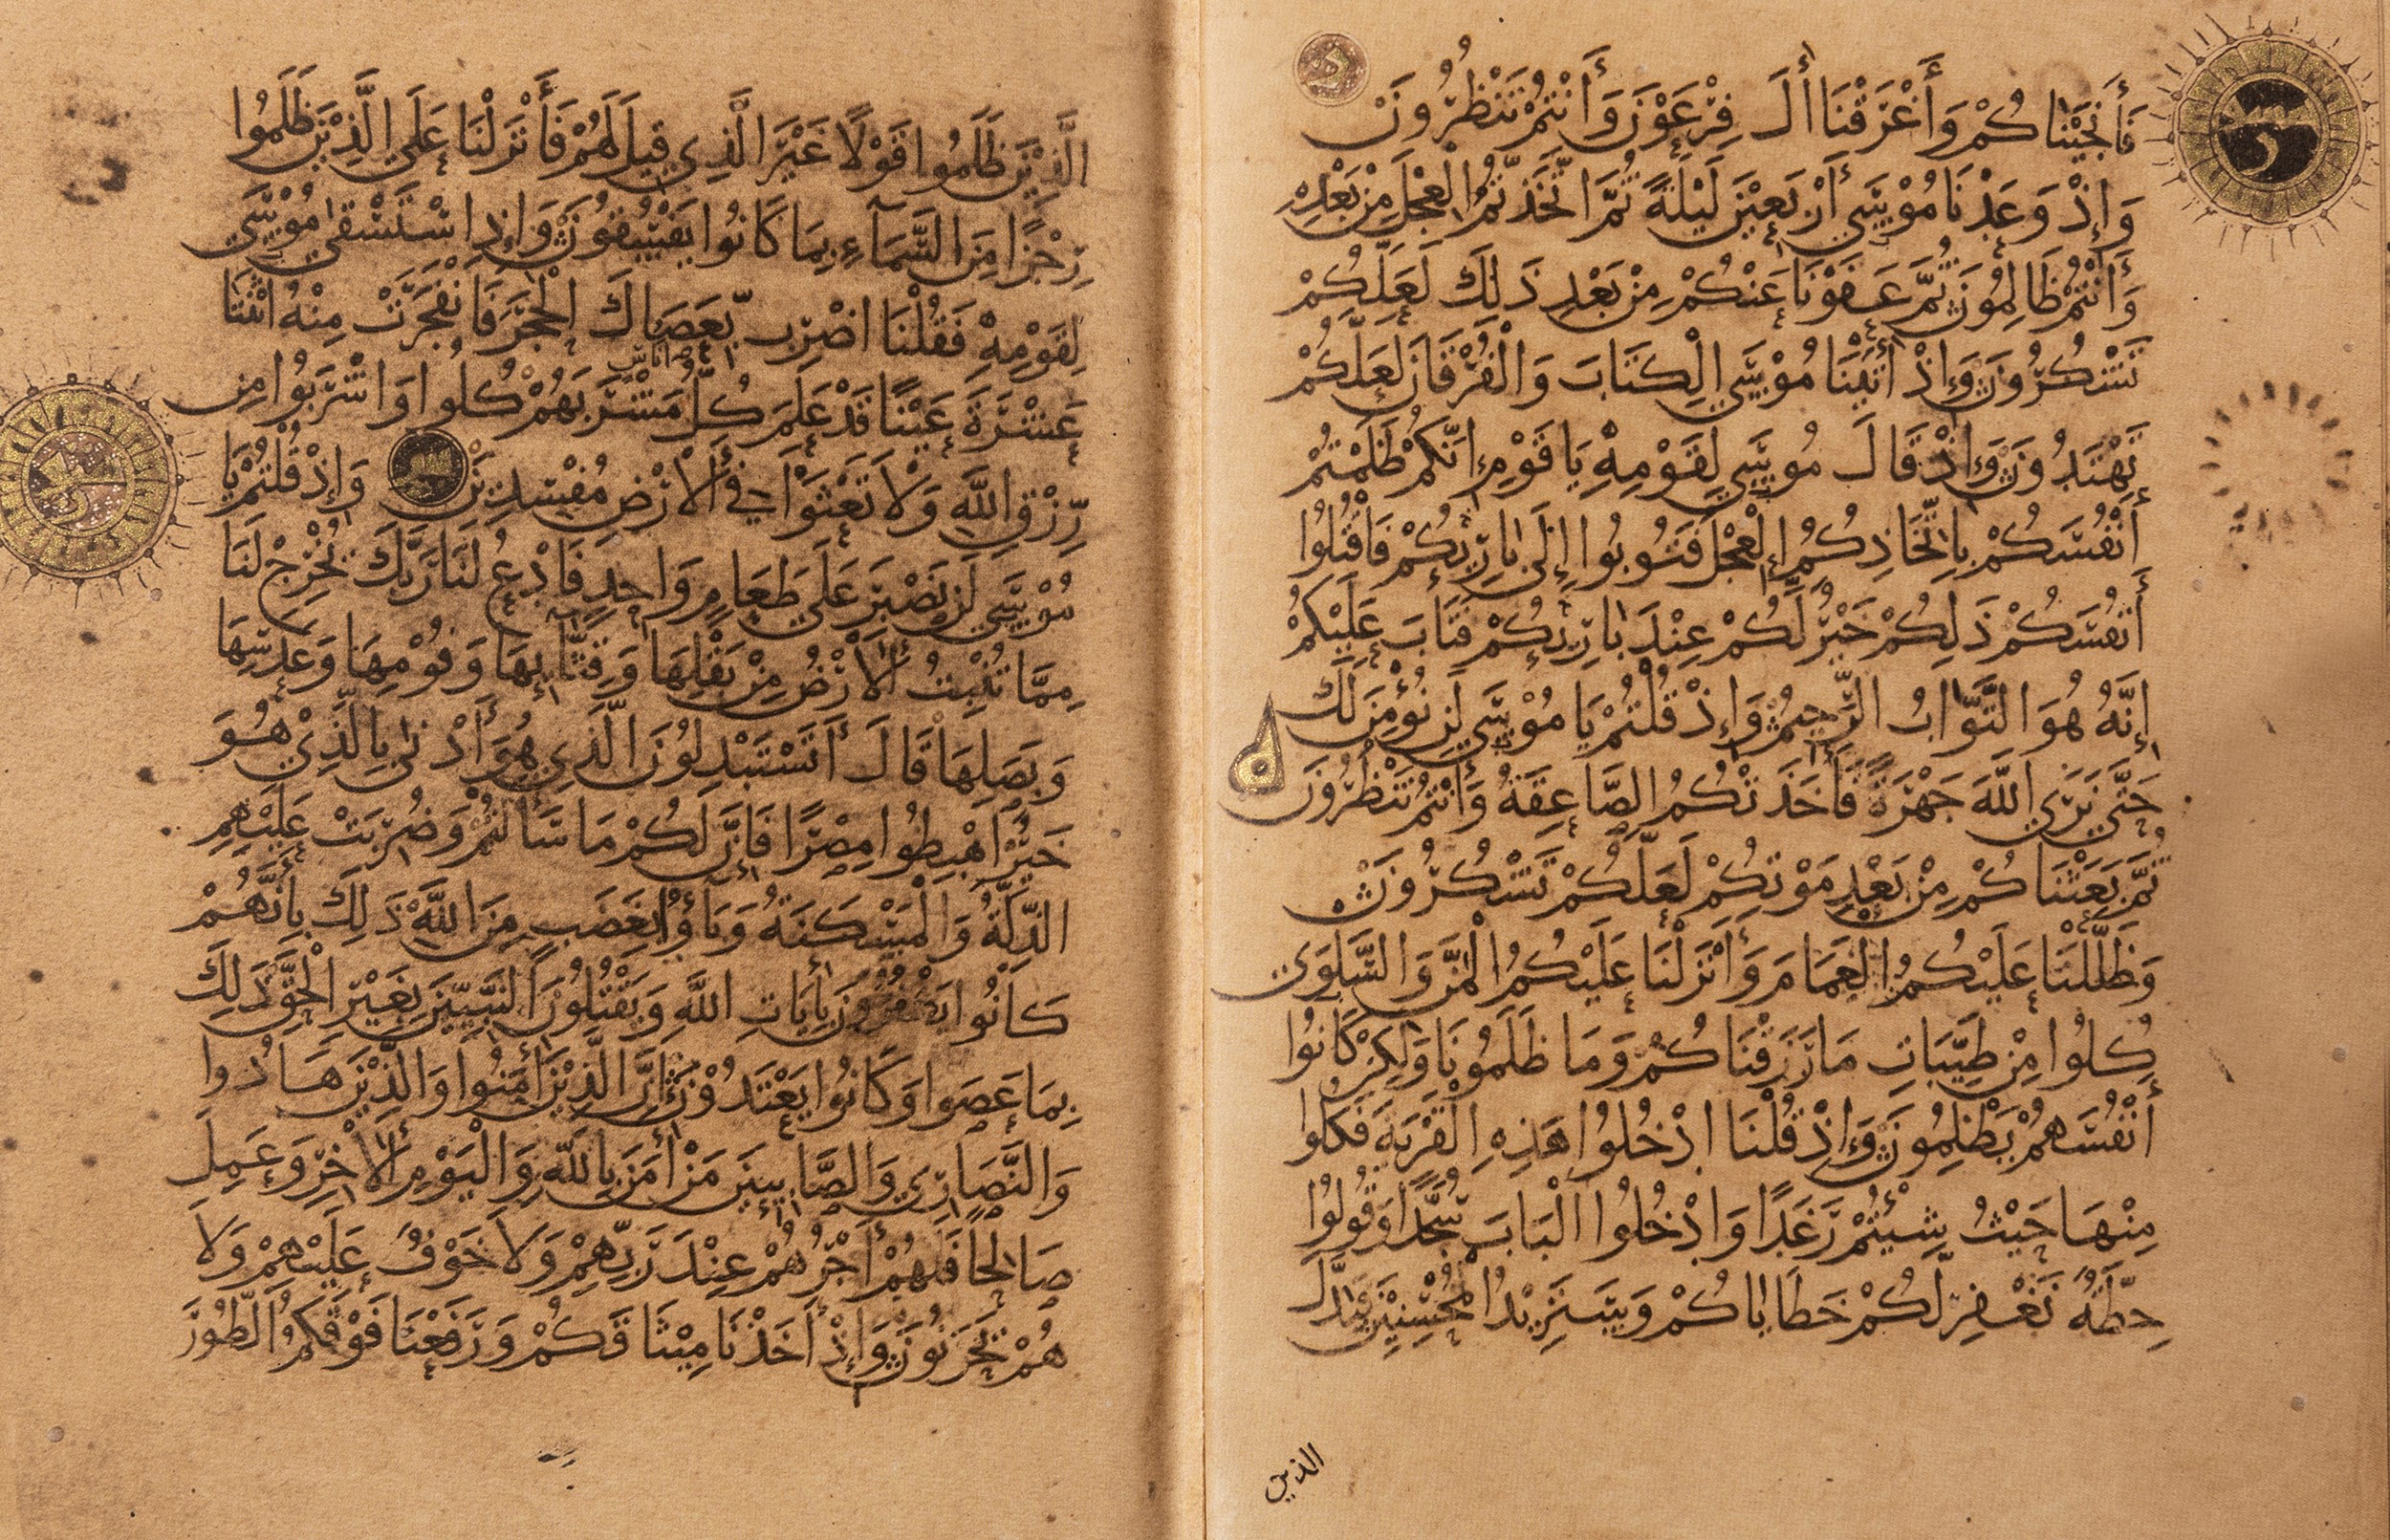 فَأَنْجَيْنَاكُمْ وَأَغْرَقْنَا أَلَ فِرْعَوْنَ وَأَنْتُمْ تَنْظُرُونَ
وَإِذْ وَعَدْنَا مُوْسَىٰ أَرْبَعِيْنَ لَيْلَةً ثُمَّ اتَّخَذْتُمُ الْعِجْلَ مِنْ بَعْدِهِ
وَأَنْتُمْ ظَالِمُونَ ثُمَّ عَفَوْنَا عَنْكُمْ مِنْ بَعْدِ ذَلِكَ لَعَلَّكُمْ
تَشْكُرُونَ وَإِذْ أَتَيْنَا مُوْسَى الْكِتَابَ وَالْفُرْقَانَ لَعَلَّكُمْ
تَهْتَدُونَ وَإِذْ قَالَ مُوسَى لِقَوْمِهِ يَا قَوْمِ إِنَّكُمْ ظَلَمْتُمْ
أَنْفُسَكُمْ بِاتِّخَاذِكُمُ الْعِجْلَ فَتُوبُوا إِلَى بَارِئِكُمْ فَاقْتُلُوا
أَنْفُسَكُمْ ذَلِكُمْ خَيْرٌ لَكُمْ عِنْدَ بَارِئِكُمْ فَتَابَ عَلَيْكُمْ
إِنَّهُ هُوَ التَّوَّابُ الرَّحِيمُ وَإِذْ قُلْتُمْ يَا مُوْسَى لَنْ نُؤْمِنَ لَكَ
حَتَّى نَرَى اللَّهَ جَهْرَةً فَأَخَذَتْكُمُ الصَّاعِقَةُ وَأَنْتُمْ تَنْظُرُونَ
ثُمَّ بَعَثْنَاكُمْ مِنْ بَعْدِ مَوْتِكُمْ لَعَلَّكُمْ تَشْكُرُونَ
وَظَلَّلْنَا عَلَيْكُمُ الْغَمَامَ وَأَنْزَلْنَا عَلَيْكُمُ الْمَنَّ وَالسَّلْوَى
كُلُوا مِنْ طَيِّبَاتِ مَا رَزَقْنَاكُمْ وَمَا ظَلَمُونَا وَلَكِنْ كَانُوا
أَنْفُسَهُمْ يَظْلِمُونَ وَإِذْ قُلْنَا ادْخُلُوا هَذِهِ الْقَرْيَةَ فَكُلُوا
مِنْهَا حَيْثُ شِئْتُمْ رَغَدًا وَادْخُلُوا الْبَابَ سُجَّدًا وَقُولُوا
حِطَّةٌ نَغْفِرْ لَكُمْ خَطَايَاكُمْ وَسَنَزِيْدُ الْمُحْسِنِيْنَ فَبَدَّلَ
الذين
الَّذِيْنَ ظَلَمُوا قَوْلًا غَيْرَ الَّذِي قِيلَ لَهُمْ فَأَنْزَلْنَا عَلَى الَّذِيْنَ ظَلَمُوا
رِجْزًا مِنَ السَّمَآءِ بِمَا كَانُوا يَفْسُقُونَ وَإِذِ اسْتَسْقَى مُوْسَى
لِقَوْمِهِ فَقُلْنَا اضْرِبْ بِعَصَاكَ الْحَجَرَ فَانْفَجَرَتْ مِنْهُ اثْنَتَا
عَشْرَةَ عَيْنًا قَدْ عَلِمَ كُلُّ أُنَاسٍ مَشْرَبَهُمْ كُلُوا وَاشْرَبُوا مِنْ
رِزْقِ اللَّهِ وَلَا تَعْثَوْا فِي الْأَرْضِ مُفْسِدِيْنَ وَإِذْ قُلْتُمْ يَا
مُوْسَى لَنْ نَصْبِرَ عَلَى طَعَامٍ وَاحِدٍ فَادْعُ لَنَا رَبَّكَ يُخْرِجْ لَنَا
مِمَّا تُنْبِتُ الْأَرْضُ مِنْ بَقْلِهَا وَقِثَّائِهَا وَفُوْمِهَا وَعَدَسِهَا
وَبَصَلِهَا قَالَ أَتَسْتَبْدِلُونَ الَّذِي هُوَ أَدْنَى بِالَّذِيْ هُوَ
خَيْرٌ اهْبِطُوا مِصْرًا فَإِنَّ لَكُمْ مَا سَأَلْتُمْ وَضُرِبَتْ عَلَيْهِمُ
الذِّلَّةُ وَالْمَسْكَنَةُ وَبَاؤُا بِغَضَبٍ مِنَ اللَّهِ ذَلِكَ بِأَنَّهُمْ
كَانُوا يَكْفُرُونَ بِأَيَاتِ اللَّهِ وَيَقْتُلُونَ النَّبِيِّيْنَ بِغَيْرِ الْحَقِّ ذَلِكَ
بِمَا عَصَوا وَكَانُوا يَعْتَدُوْنَ إِنَّ الَّذِيْنَ أَمَنُوا وَالَّذِيْنَ هَادُوا
وَالنَّصَارَى وَالصَّابِئِيْنَ مَنْ أَمَنَ بِاللَّهِ وَالْيَوْمِ الْأَخِرِ وَعَمِلَ
صَالِحًا فَلَهُمْ أَجْرُهُمْ عِنْدَ رَبِّهِمْ وَلَا خَوْفٌ عَلَيْهِمْ وَلَا
هُمْ يَحْزَنُونَ وَإِذْ أَخَذْنَا مِيْثَاقَكُمْ وَرَفَعْنَا فَوْقَكُمُ الطُّورَ